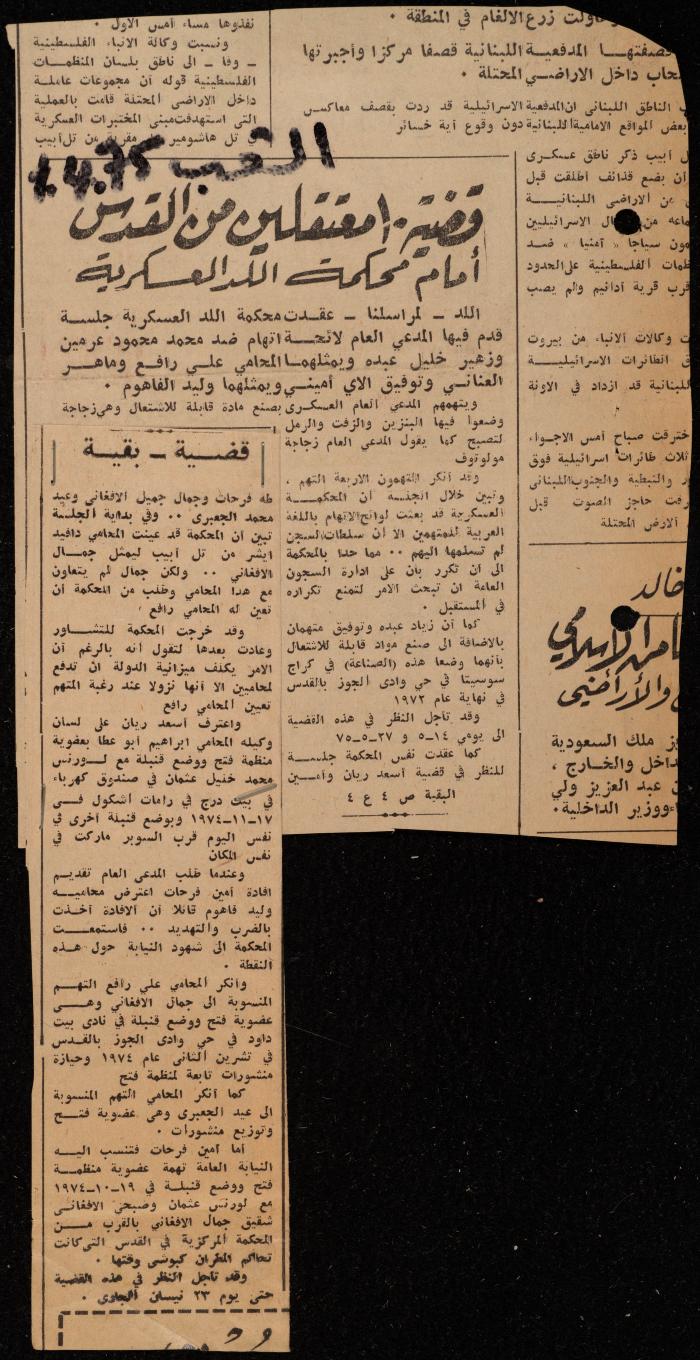 نفذوها مساء أمس الاول .
ونسبت وكالة الانباء الفلسطينية
ـ وفا ـ الى ناطق بلسان المنظمات
الفلسطينية قوله أن مجموعات عاملة
داخل الاراضي المحتلة قامت بالعملية
التي استهدفت مبنى المختبرات العسكرية
في تل هاشومير
من تل أبيب
حاولت زرع الالغام في المنطقة .
المدفعية اللبنانية قصفا مركزا وأجبرتها
داخل الاراضي المحتلة .
الناطق اللبناني ان المدفعية الاسرائيلية قد ردت بقصف معاكس
بعض المواقع الامامية اللبنانية دون وقوع أية خسائر
الشعب 1.4.75
قضية ١٠ معتقلين من القدس
أمام محكمة اللد العسكرية
اللد ـ لمراسلنا ـ عقدت محكمة اللد العسكرية جلسة
قدم فيها المدعي العام لائحة اتهام ضد محمد محمود عرمين
وزهير خليل عبده ويمثلهما المحامي علي رافع وماهر
العناني وتوفيق الاي أميني ويمثلهما وليد الفاهوم .
ويتهمهم المدعي العام العسكري بصنع مادة قابلة للاشتعال وهي زجاجة
وضعوا فيها البنزين والزفت والرمل
لتصبح كما يقول المدعي العام زجاجة
مولوتوف
وقد أنكر المتهمون الاربعة التهم ،
وتبين خلال الجلسة أن المحكمة
العسكرية قد بعثت لوائح الاتهام باللغة
العربية للمتهمين الا أن سلطات السجن
لم تسلمها اليهم .. مما حدا بالمحكمة
الى ان تكرر بأن على ادارة السجون
العامة ان تبحث الامر لتمنع تكراره
في المستقبل .
كما أن زياد عبده وتوفيق متهمان
بالاضافة الى صنع مواد قابلة للاشتعال
بأنهما وضعا هذه (الصناعة) في كراج
سوسيتا في حي وادي الجوز بالقدس
في نهاية عام ١٩٧٢
وقد تأجل النظر في هذه القضية
الى يومي ١٤ـ٥ و ٢٧ـ٥ـ٧٥
كما عقدت نفس المحكمة جلسة
للنظر في قضية أسعد ريان وأمين
البقية ص ٤ ع ٤
قضية ـ بقية
طه فرحات وجمال جميل الافغاني وعيد
محمد الجعبري .. وفي بداية الجلسة
تبين ان المحكمة قد عينت المحامي دافيد
ايشر من تل أبيب ليمثل جمال
الافغاني .. ولكن جمال لم يتعاون
مع هذا المحامي وطلب من المحكمة أن
تعين له المحامي رافع .
وقد خرجت المحكمة للتشاور
وعادت بعدها لتقول أنه بالرغم أن
الامر يكلف ميزانية الدولة ان تدفع
لمحاميين الا أنها نزولا عند رغبة المتهم
تعيين المحامي رافع
واعترف أسعد ريان على لسان
وكيله المحامي ابراهيم أبو عطا بعضوية
منظمة فتح ووضع قنبلة مع لورنس
محمد خليل عثمان في صندوق كهرباء
في بيت درج في رامات أشكول في
١٧ـ١١ـ١٩٧٤ وبوضع قنبلة أخرى في
نفس اليوم قرب السوبر ماركت في
نفس المكان
وعندما طلب المدعي العام تقديم
افادة أمين فرحات اعترض محاميه
وليد فاهوم قائلا أن الافادة أخذت
بالضرب والتهديد .. فاستمعت
المحكمة الى شهود النيابة حول هذه
النقطة .
وأنكر المحامي علي رافع التهم
المنسوبة الى جمال الافغاني وهي
عضوية فتح ووضع قنبلة في نادي بيت
داود في حي وادي الجوز بالقدس
في تشرين الثاني عام ١٩٧٤ وحيازة
منشورات تابعة لمنظمة فتح
كما أنكر المحامي التهم المنسوبة
الى عيد الجعبري وهي عضوية فتح
وتوزيع منشورات .
أما أمين فرحات فتنسب اليه
النيابة العامة تهمة عضوية منظمة
فتح ووضع قنبلة في ١٩ـ١٠ـ١٩٧٤
مع لورنس عثمان وصبحي الافغاني
شقيق جمال الافغاني بالقرب من
المحكمة المركزية في القدس التي كانت
تحاكم المطران كبوشي وقتها .
وقد تأجل النظر في هذه القضية
حتى يوم ٢٣ نيسان الجاري .
أبيب ذكر ناطق عسكري
أن بضع قذائف اطلقت قبل
من الاراضي اللبنانية
الاسرائيليين
سياجا « أمنيا » ضد
الفلسطينية على الحدود
قرب قرية أدانيم ولم يصب
وكالات الانباء من بيروت
الطائرات الاسرائيلية
اللبنانية قد ازداد في الاونة
اخترقت صباح أمس الاجواء
ثلاث طائرات اسرائيلية فوق
والنبطية والجنوب اللبناني
حاجز الصوت قبل
الارض المحتلة
خالد
الاسلامي
والأراضي
ملك السعودية
الداخل والخارج ،
عبد العزيز ولي
ووزير الداخلية .